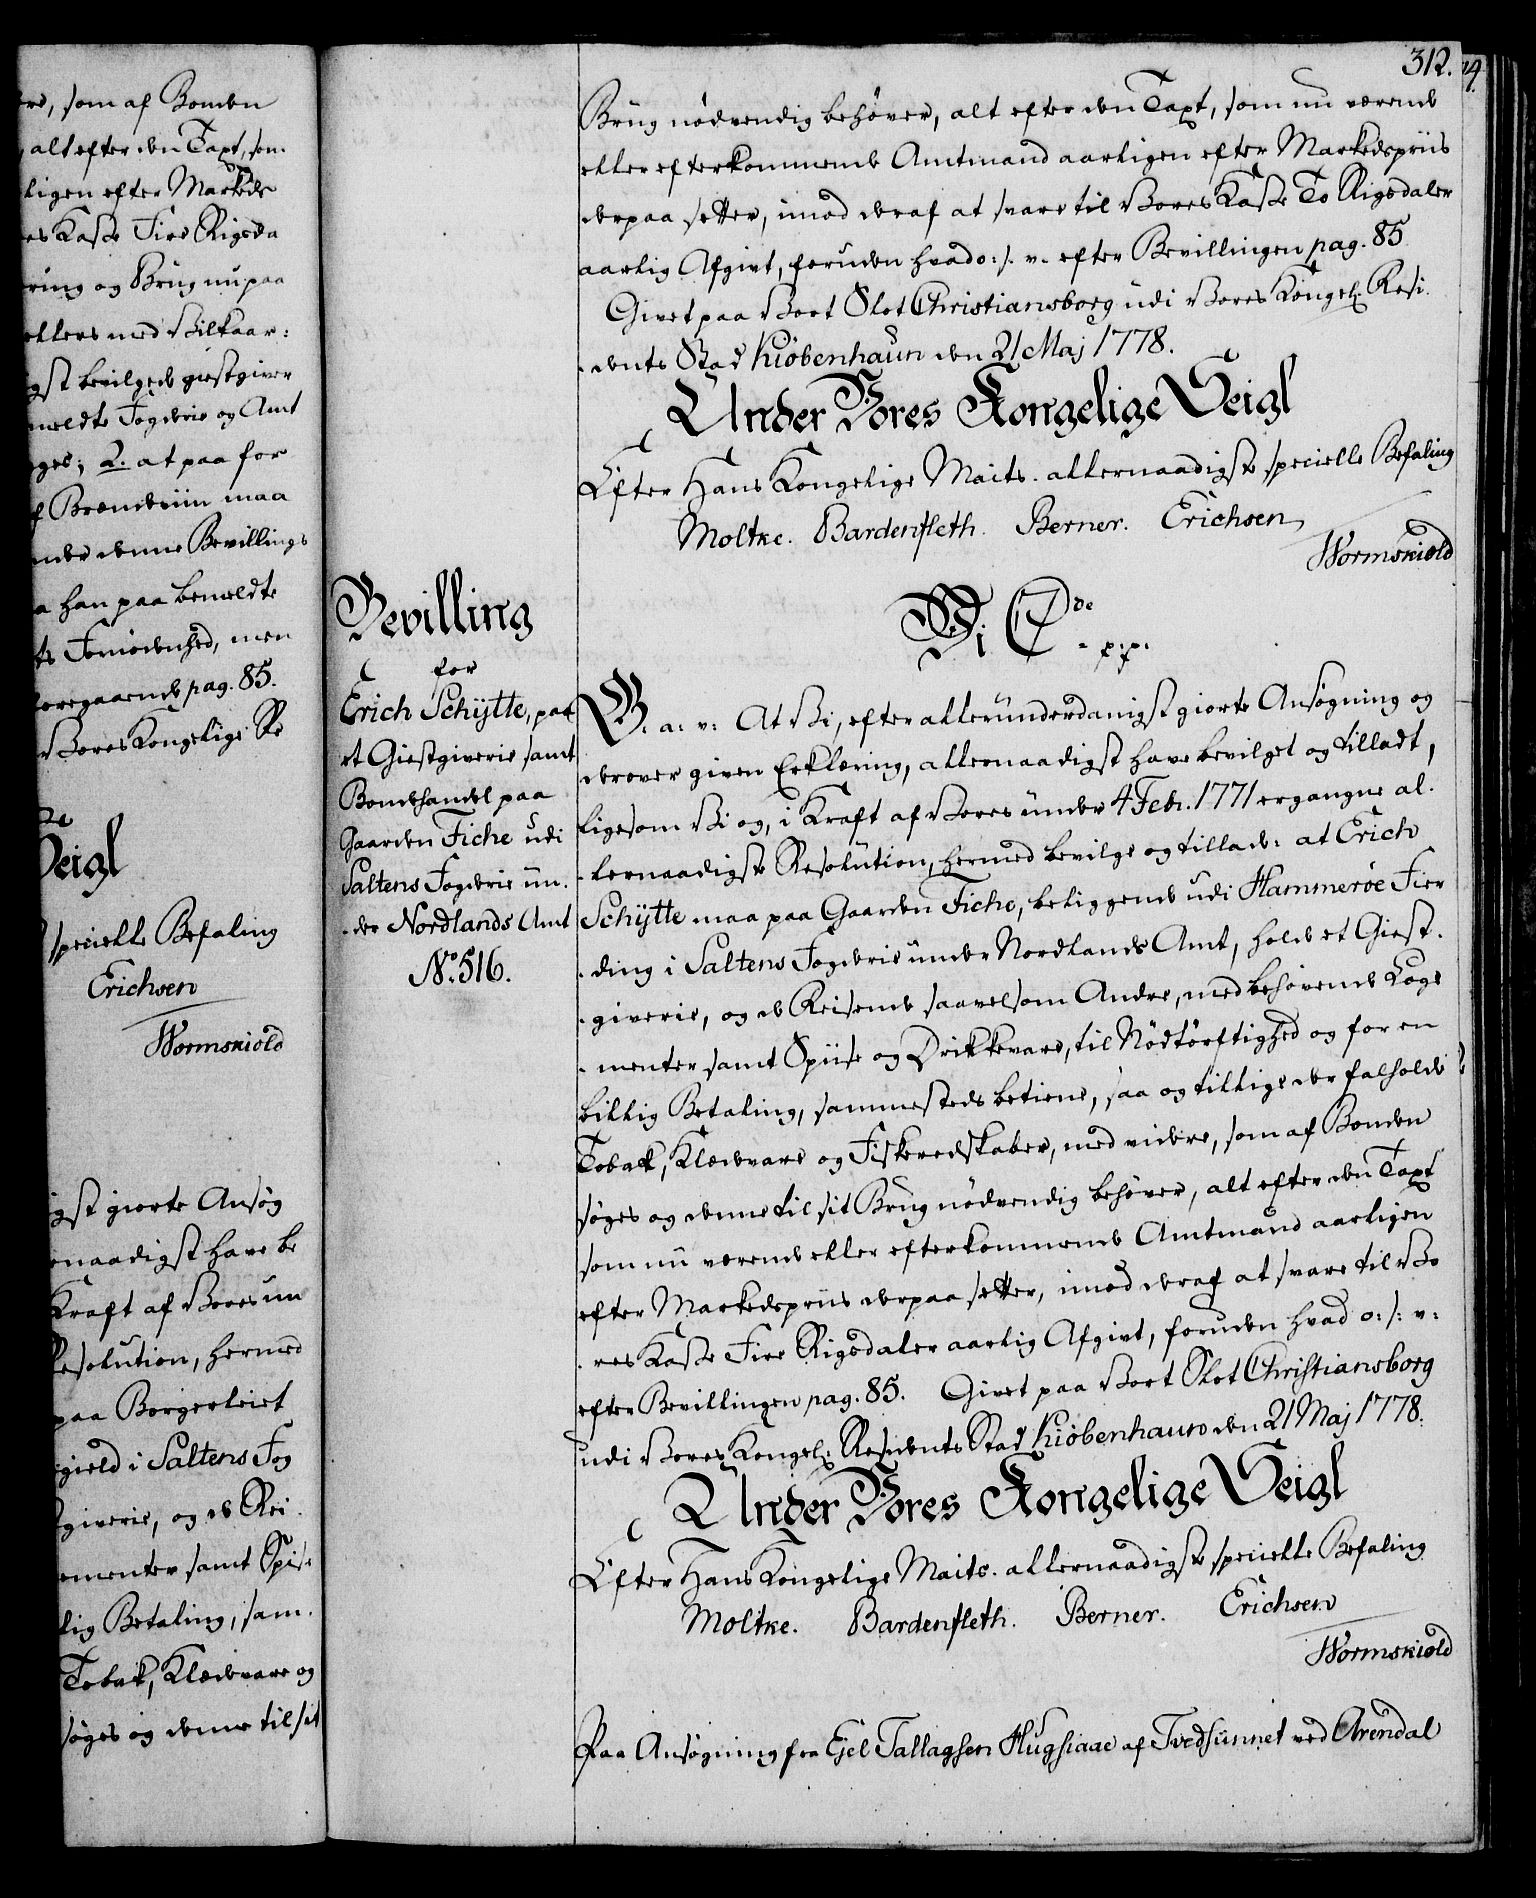 ere, som af Bonden
alt efter den Taxt, som
ligen efter Markeds
es Kaße Fire Rigsda
ring og Brug nu paa
ellers med Vilkaar:
gst bevilgede giestgiver
meldte Fogderie og Amt
ges; 2. at paa for
f Brændeviin maa
nder denne Bevillings
a han paa bemeldte
ts Fornødenhed, men
foregaaende pag. 85.
Vores Kongelige Re
Seigl
specielle Befaling
Erichsen
Wormskiold
igst giorte Ansøg
ernaadigst have be
Kraft af Vores un
Resolution, hermed
paa Borgerleiet
gield i Saltens Fog
giverie, og de Rei
ementer samt Spise
lig Betaling, sam
Tobak, Klædevare og
søges og denne til sit
312.
Brug nødvendig behøver, alt efter den Taxt, som nu værende
eller efterkommende Amtmand aarligen efter Markedspriis
derpaa setter, imod deraf at svare til Vores Kaße To Rigsdaler
aarlig Afgivt, foruden hvad o: s: v: efter Bevillingen pag. 85
Givet paa Vort Slot Christiansborg udi Vores Kongel: Resi
dents Stad Kiöbenhaun den 21 Maj 1778.
Under Vores Kongelige Seigl
Efter Hans Kongelige Maits. allernaadigste specielle Befaling
Moltke. Bardenfleth. Berner. Erichsen
Wormskiold
Bevilling
for
Erich Schytte, paa
et Giestgiverie samt
Bondehandel paa
Gaarden Fiche udi
Saltens Fogderie un
der Nordlands Amt
No. 516.
Vi C 7de p: p:
G. a: v: At Vi, efter allerunderdanigst giorte Ansøgning og
derover given Erklæring, allernaadigst have bevilget og tilladt,
ligesom Vi og, i Kraft af Vores under 4 Febr. 1771 ergangne al
lernaadigste Resolution, hermed bevilge og tillade: at Erich
Schytte maa paa Gaarden Fiche, beliggende udi Hammeröe Fier
ding i Saltens Fogderie under Nordlands Amt, holde et Giest
giverie, og de Reisende saavelsom Andre, med behøvende Loge
menter samt Spiise og Drikkevare, til Nødtørftighed og for en
billig Betaling, sammesteds betiene, saa og tillige der falholde
Tobak, Klædevare og Fiskeredskaber, med videre, som af Bonden
søges og denne til sit Brug nødvendig behøver, alt efter den Taxt
som nu værende eller efterkommende Amtmand aarligen
efter Markedspriis derpaa setter, imod deraf at svare til Vo
res Kaße Fire Rigsdaler aarlig Afgivt, foruden hvad o: s: v:
efter Bevillingen pag. 85. Givet paa Vort Slot Christiansborg
udi Vores Kongel: Residents Stad Kiöbenhaun den 21 Maj 1778.
Under Vores Kongelige Seigl
Efter Hans Kongelige Maits. allernaadigste specielle Befaling
Moltke. Bardenfleth. Berner. Erichsen
Wormskiold
Paa Ansøgning fra Ejel Tallagsen Hugsiaae af Tvedsunnet ved Arendal